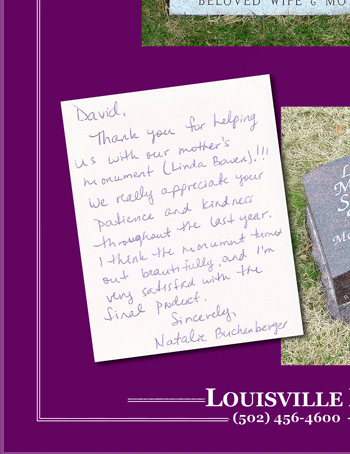 BELOVED WIFE & MO
David,
Thank you for helping
us with our mother's
monument (Linda Bowen)!!!
We really appreciate your
patience and kindness
throughout the last year.
I think the monument turned
out beautifully, and I'm
very satisfied with the
final product.
Sincerely,
Natalie Buchenberger
LOUISVILLE
(502) 456-4600